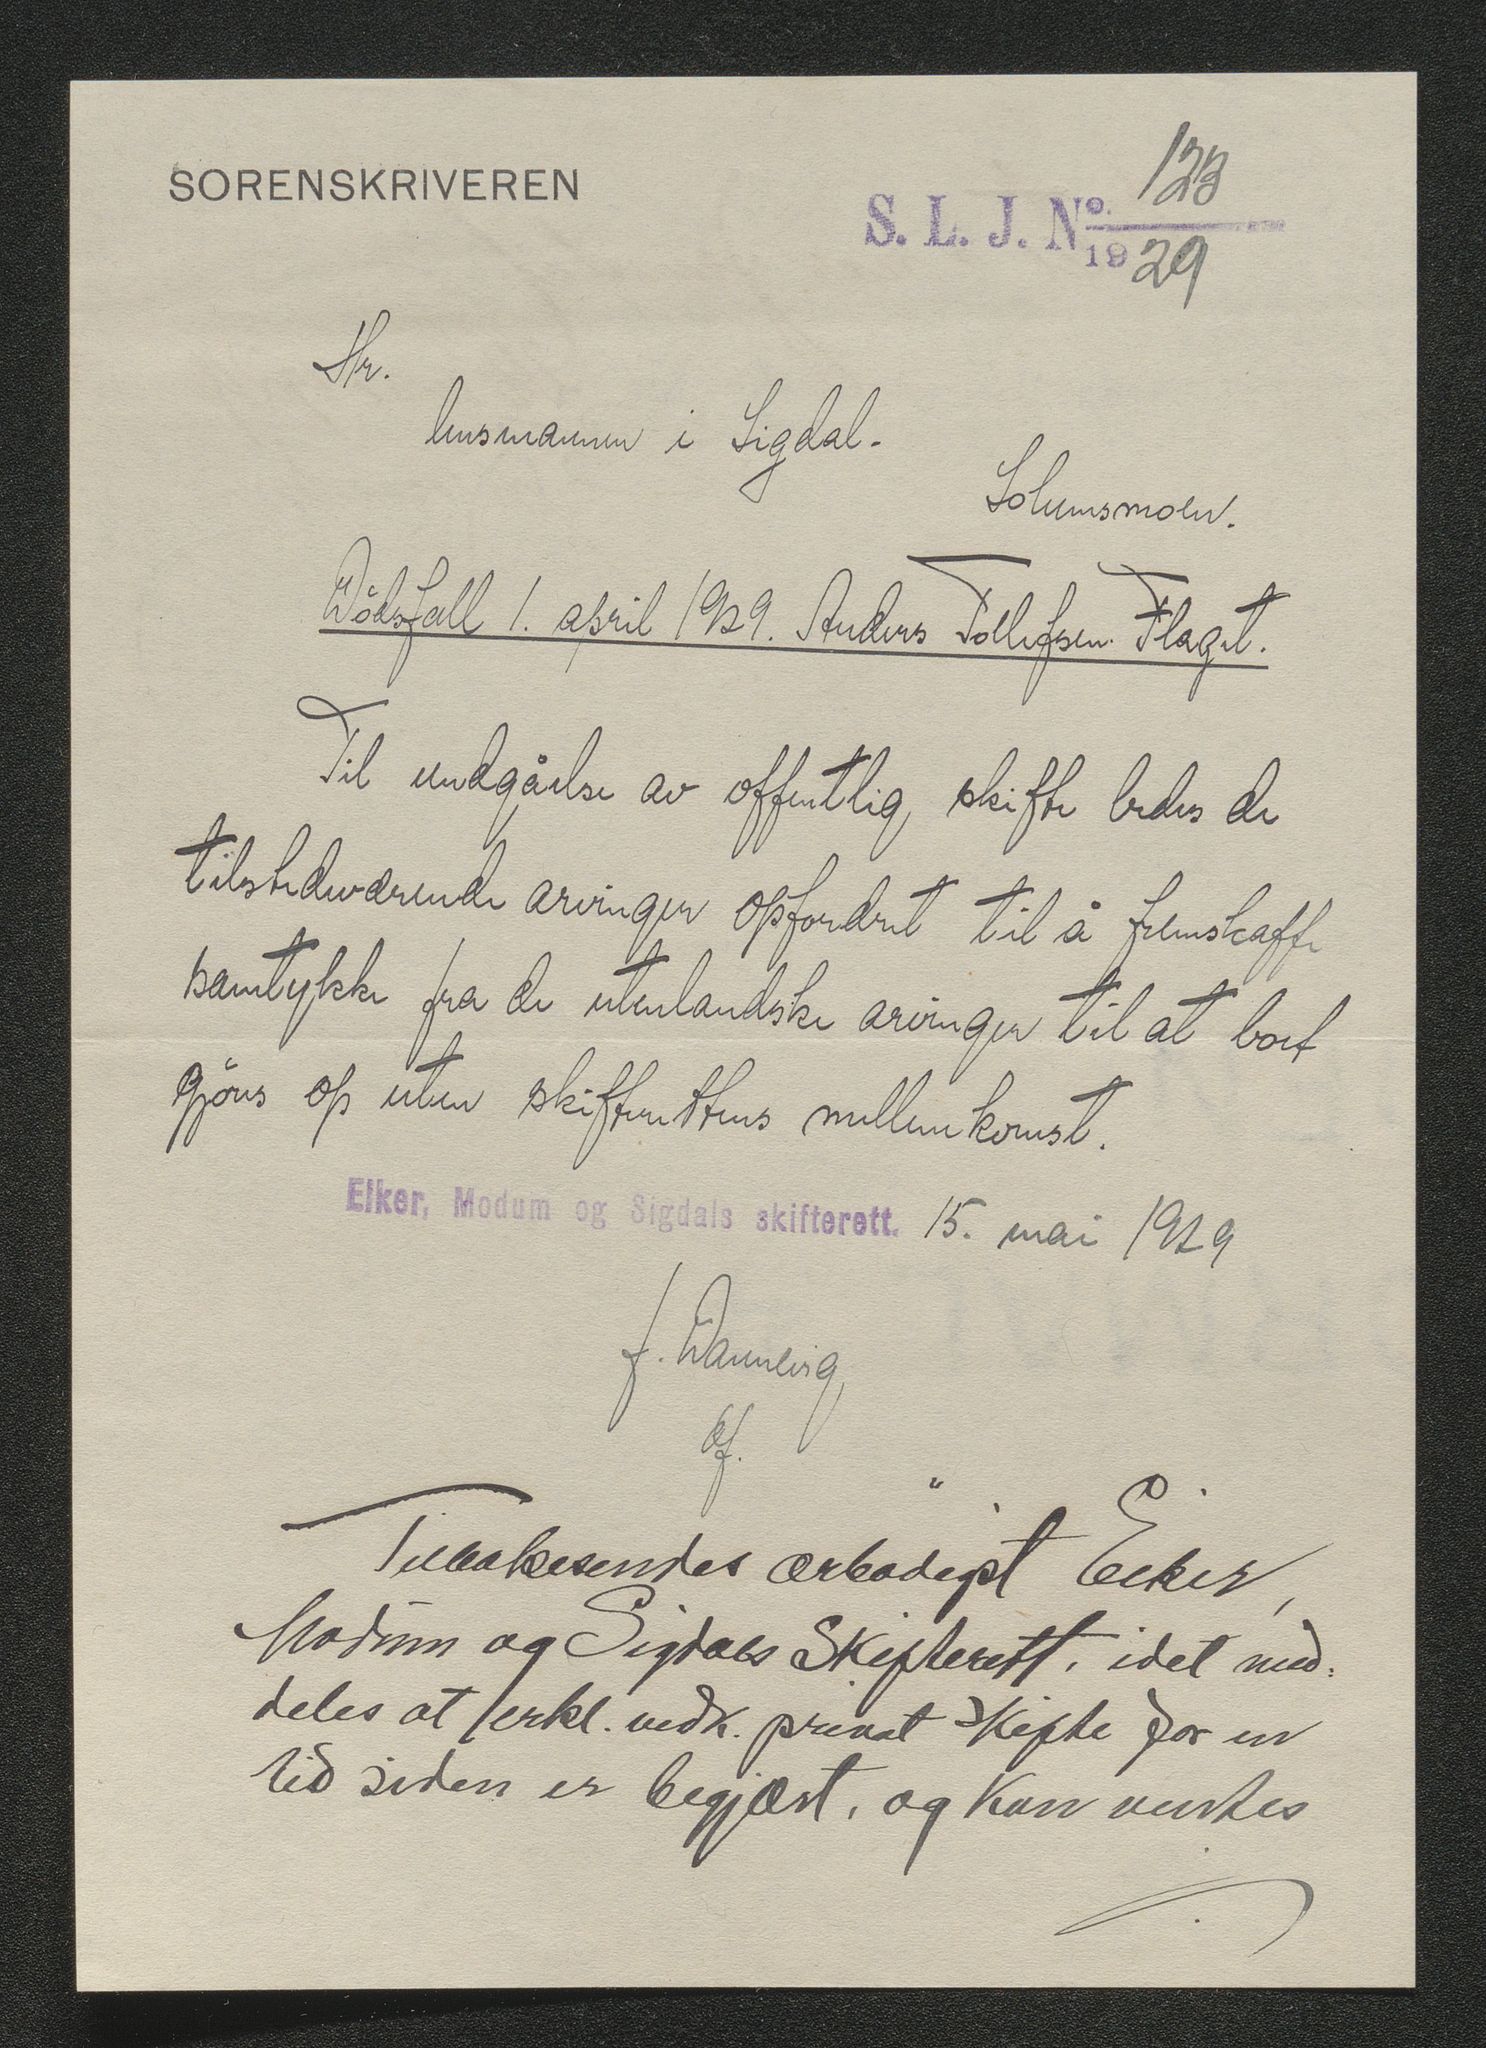 SORENSKRIVEREN
S. L. J. Nº 123
1929
Hr.
lensmannen i Sigdal.
Solumsmoen.
Dödsfall 1. april 1929. Anders Tollefsen Flaget.
Til undgåelse av offentlig skifte bedes de
tilstedeværende arvinger opfordret til å fremskaffe
samtykke fra de utenlandske arvinger til at boet
gjöres op uten skifterettens mellemkomst.
Eiker, Modum og Sigdals skifterett. 15. mai 1929
f. Dannevig,
ef.
Tilbakesendes ærbødigst Eiker,
Modum og Sigdals Skifterett, idet med-
deles at erkl. vedk. privat skifte for en
tid siden er begjært, og kan ventes